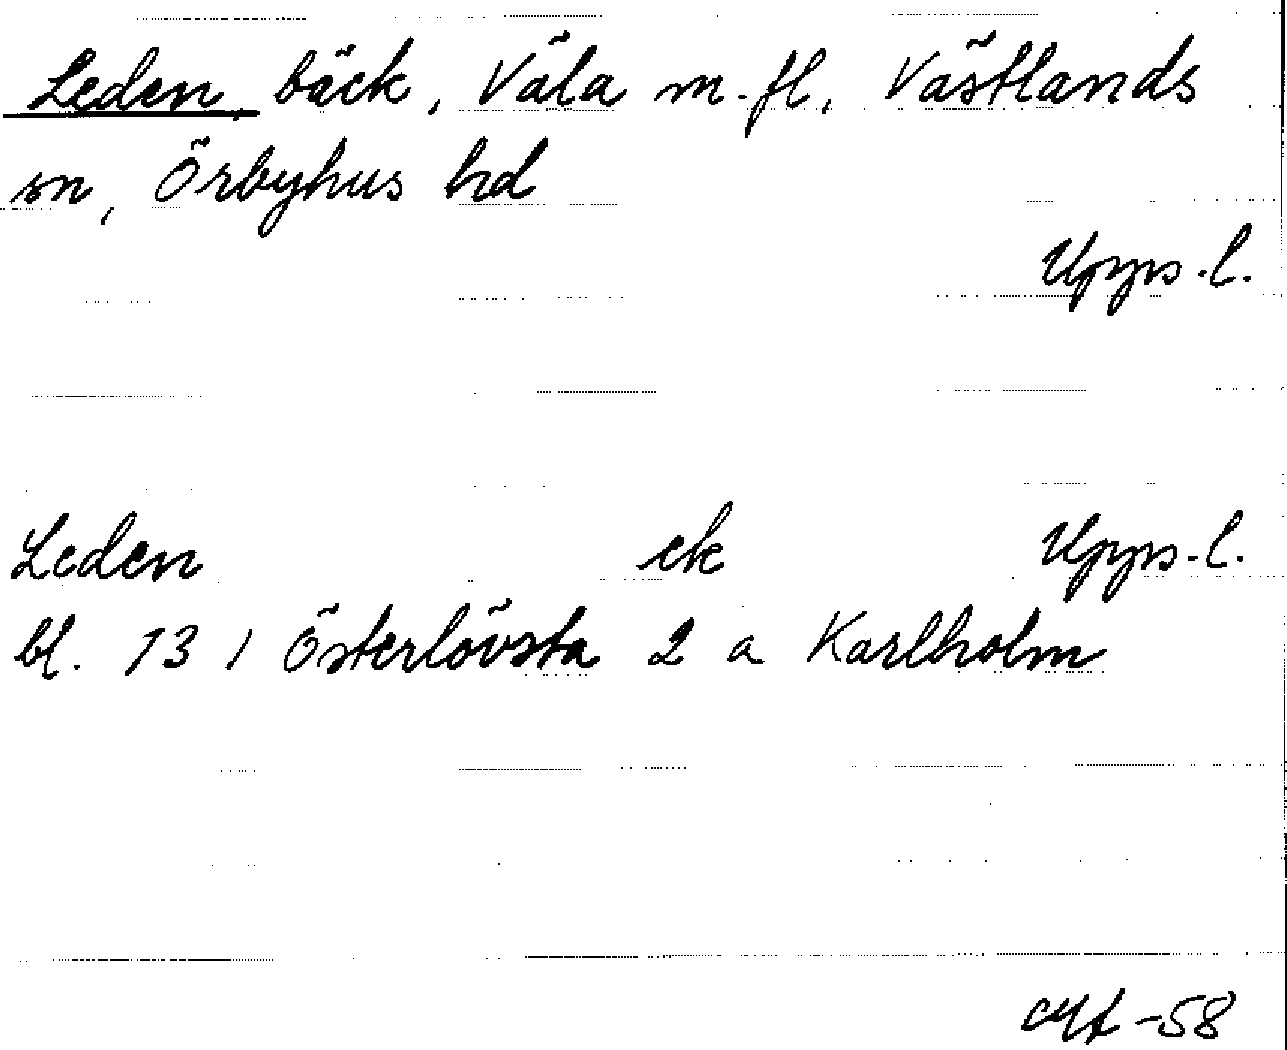 Leden, bäck, Väla m.fl., Västlands
sn, Örbyhus hd
Upps.l.
Leden ek Upps.l.
bl. 13 I Österlövsta 2 a Karlholm
-58